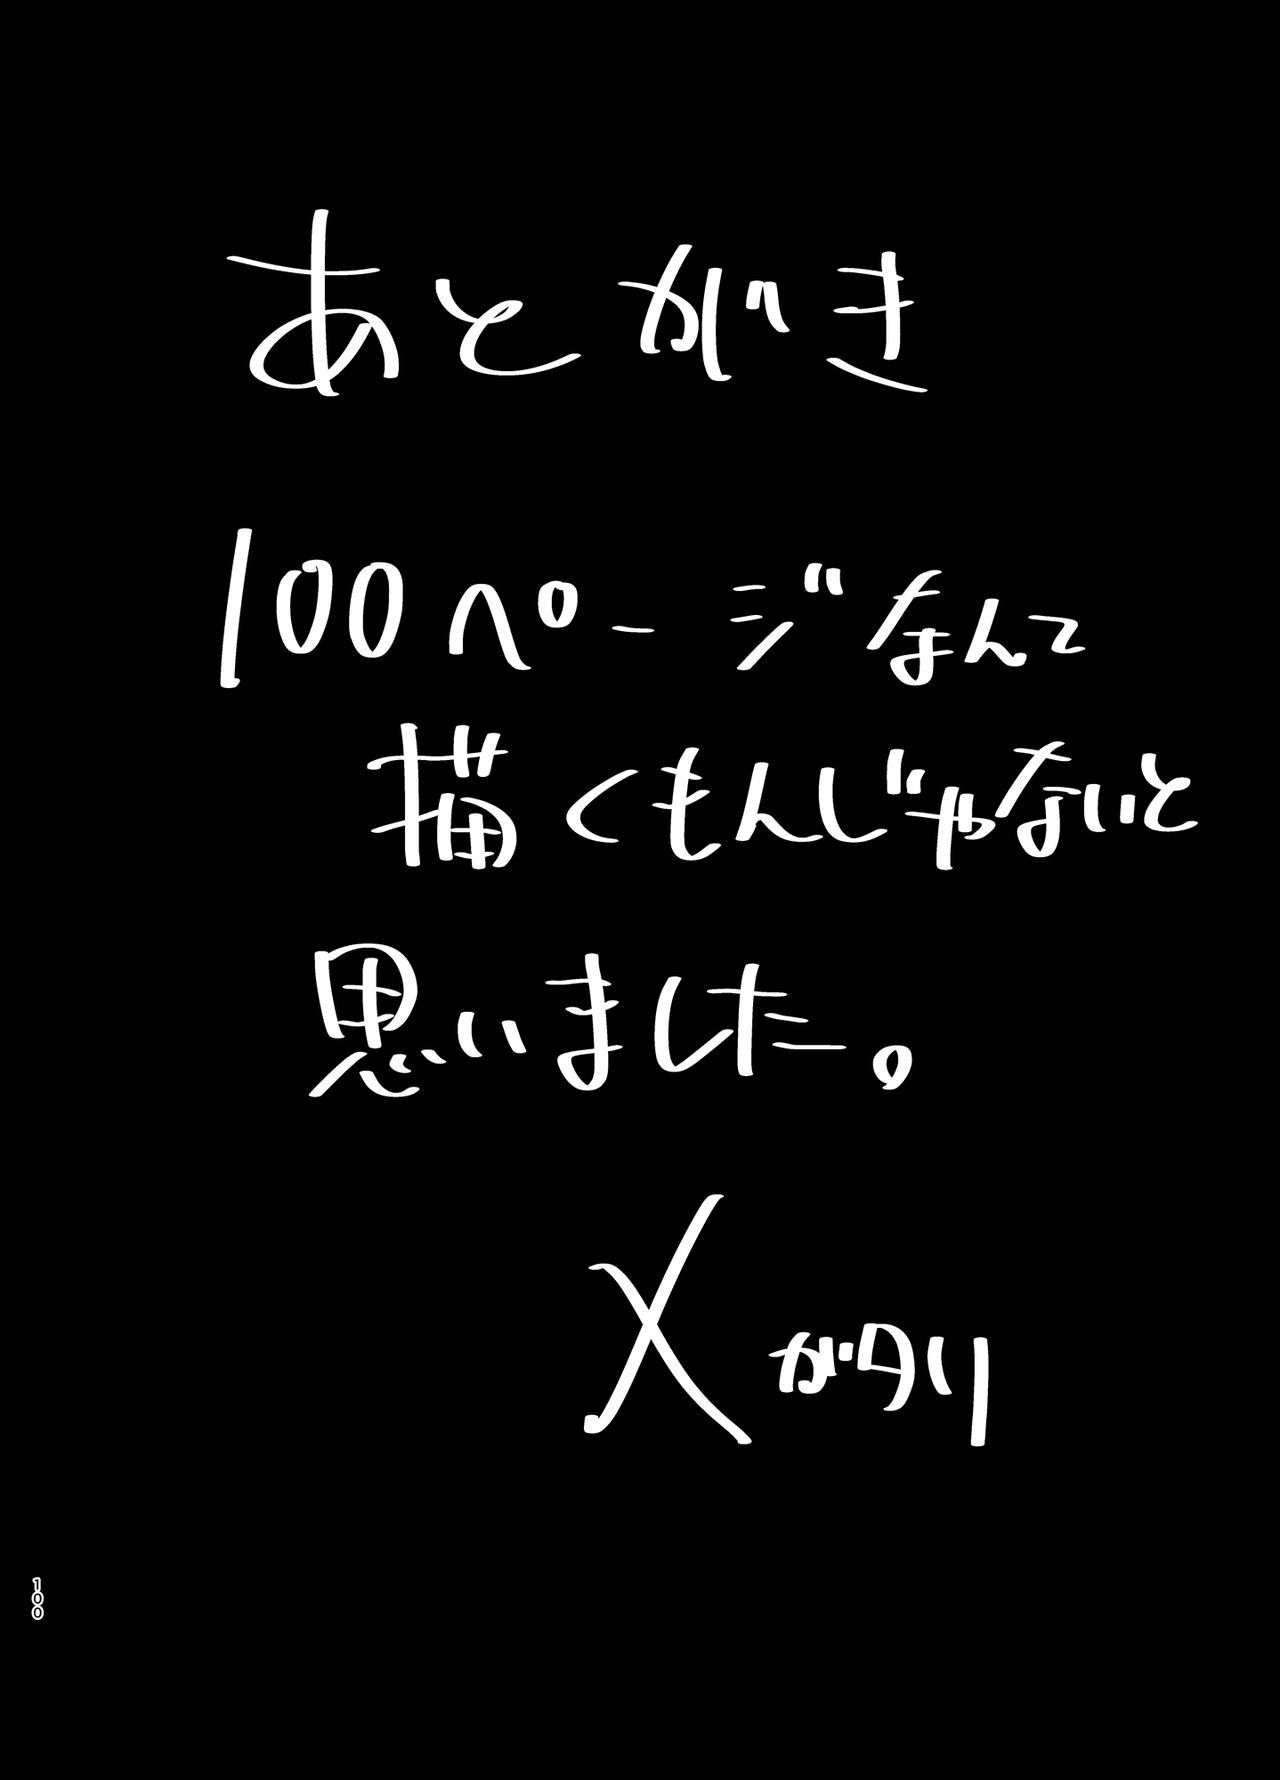 あとがき
100ページなんて
描くもんじゃないと
思いました。
メガ刈
100